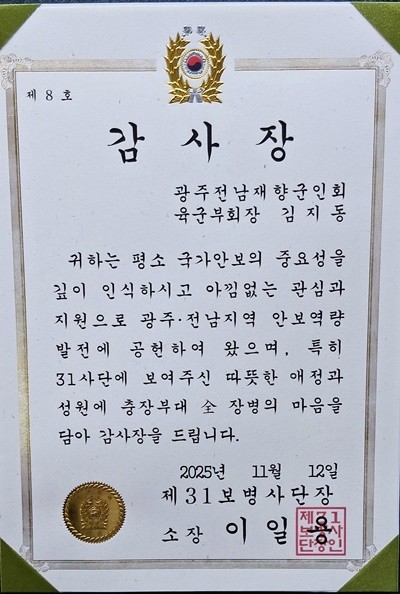 제 8 호
감 사 장
광주전남재향군인회
육군부회장 김지동
귀하는 평소 국가안보의 중요성을
깊이 인식하시고 아낌없는 관심과
지원으로 광주·전남지역 안보역량
발전에 공헌하여 왔으며, 특히
31사단에 보여주신 따뜻한 애정과
성원에 충장부대 全 장병의 마음을
담아 감사장을 드립니다.
2025년 11월 12일
제31보병사단장
소장 이 일 용
제31
보병사
단장인